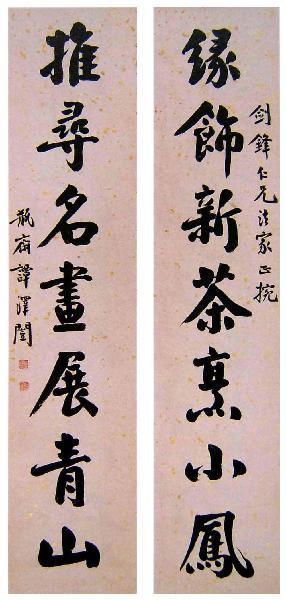 剑鋒仁兄法家正捥
緣飾新茶烹小鳳
推尋名畫展青山
瓶齋譚澤闓